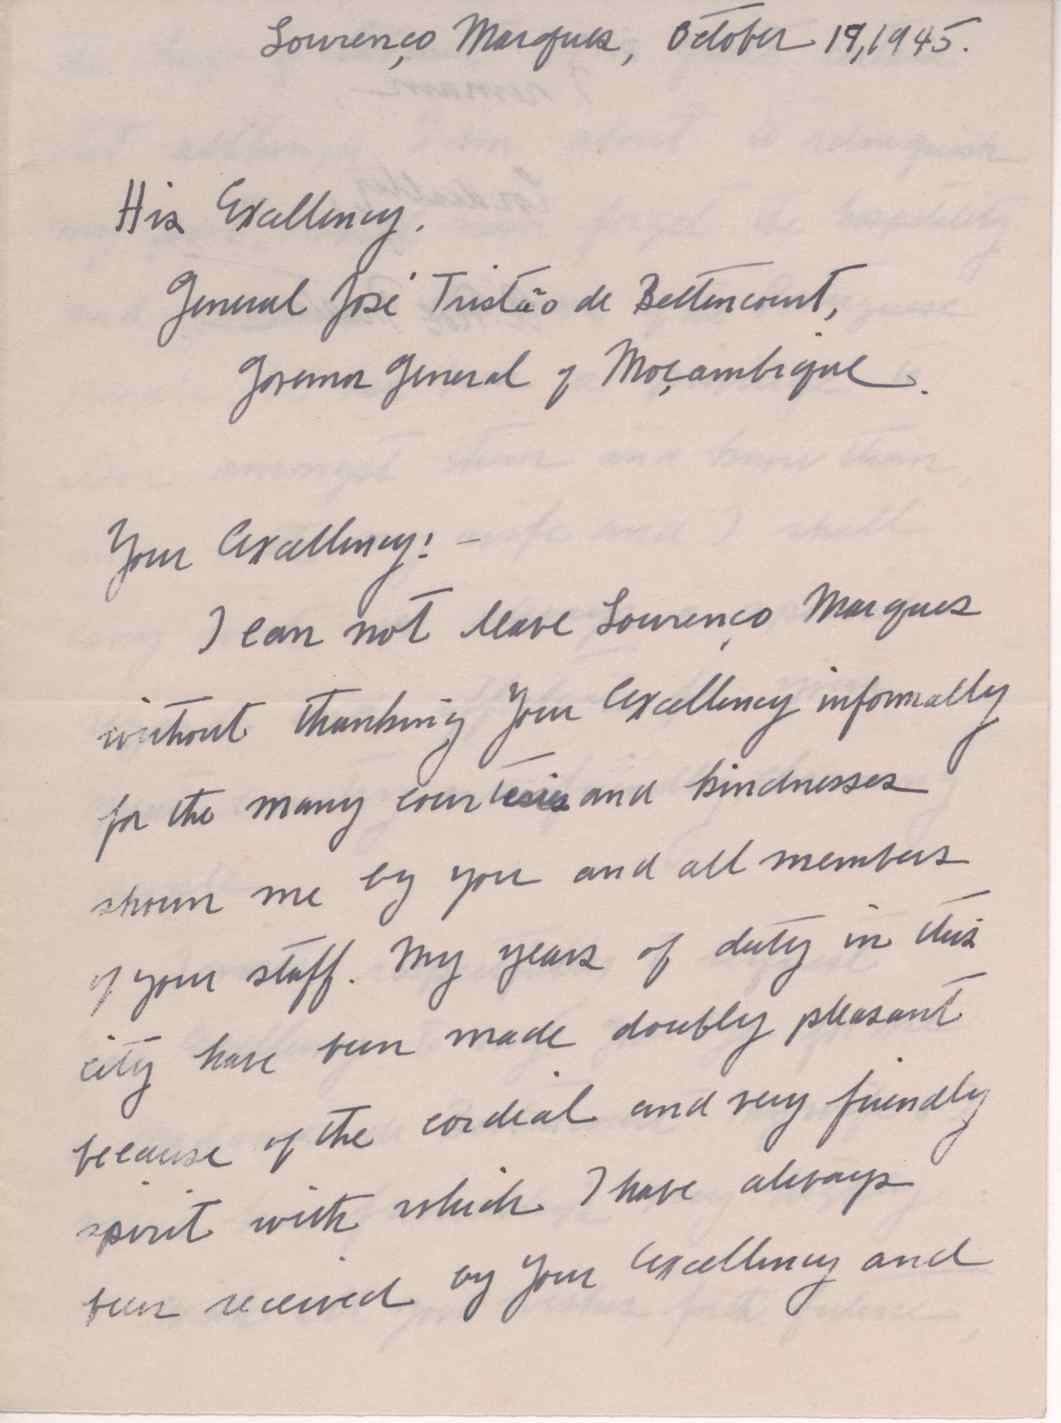 Lourenço Marques, October 19, 1945.
His Excellency.
General José Tristão de Bettencourt,
Governor General of Moçambique.
Your Excellency: –
I can not leave Lourenço Marques
without thanking Your Excellency informally
for the many courtesies and kindnesses
shown me by you and all members
of your staff. My years of duty in this
city have been made doubly pleasant
because of the cordial and very friendly
spirit with which I have always
been received by Your Excellency and